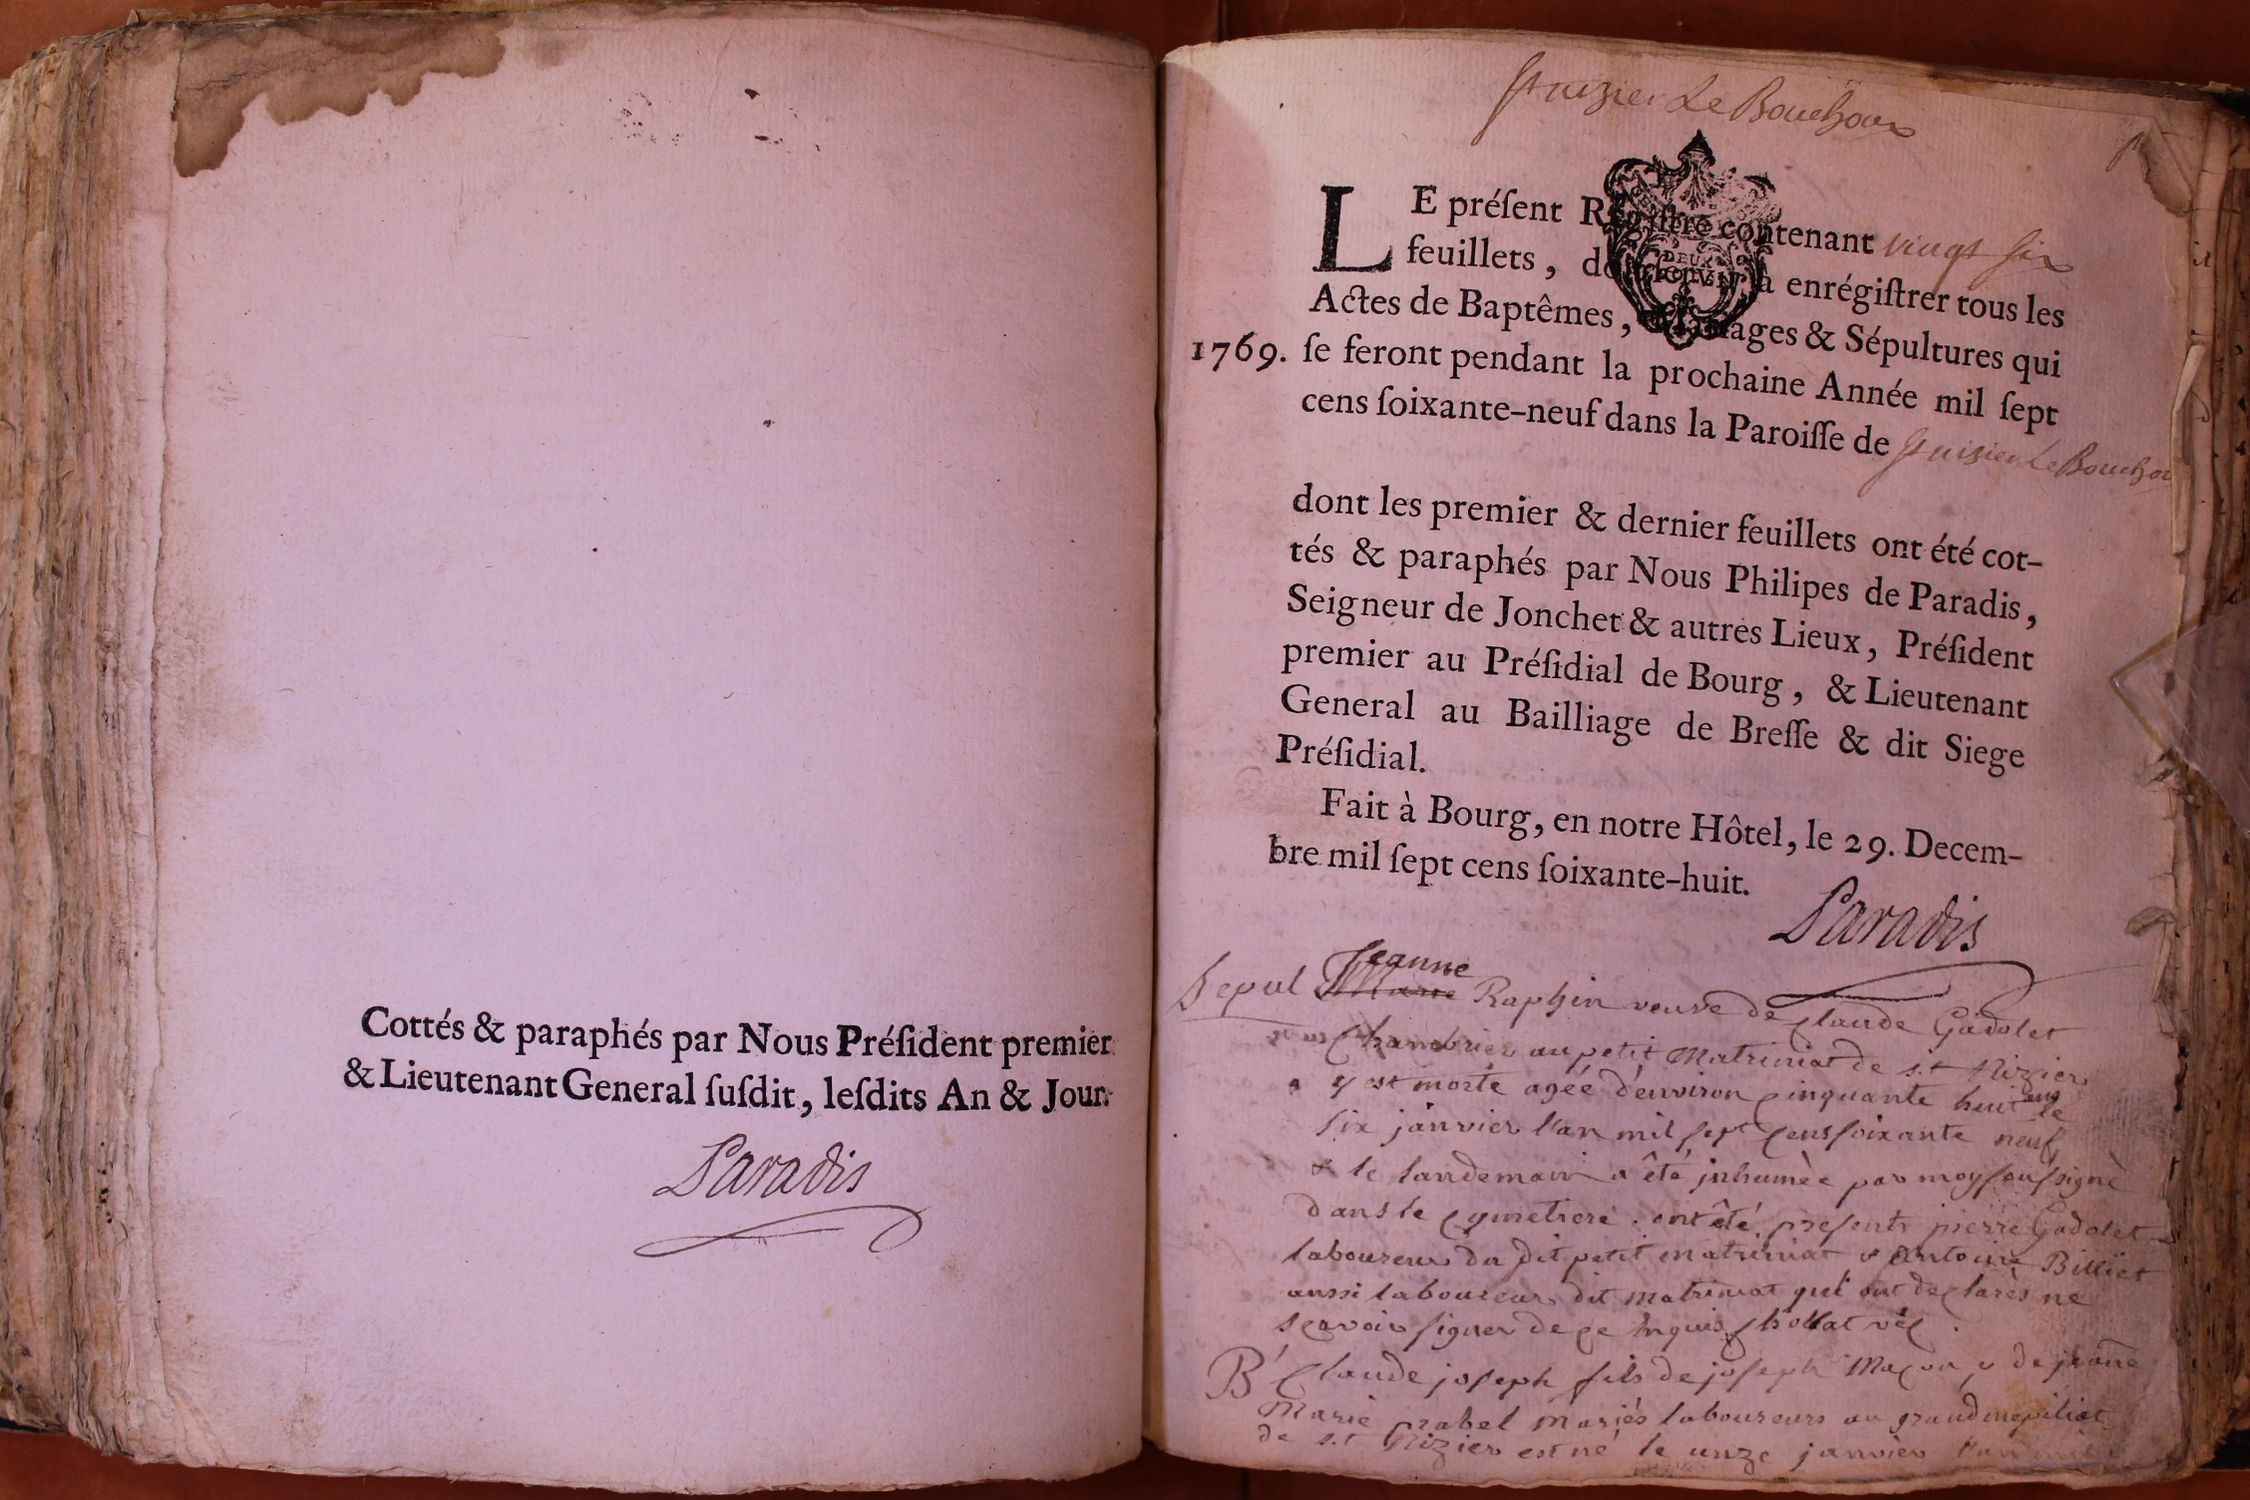 Cottés & paraphés par Nous Préſident premier
& Lieutenant General ſuſdit, leſdits An & Jour.
Paradis
St nizier Le Bouchoux
LE préſent Régiſtre contenant vingt six
feuillets, à enrégiſtrer tous les
Actes de Baptêmes, Mariages & Sépultures qui
1769. ſe feront pendant la prochaine Année mil ſept
cens ſoixante-neuf dans la Paroiſſe de St nizier Le Bouchou
dont les premier & dernier feuillets ont été cot-
tés & paraphés par Nous Philipes de Paradis,
Seigneur de Jonchet & autres Lieux, Préſident
premier au Préſidial de Bourg, & Lieutenant
General au Bailliage de Breſſe & dit Siege
Préſidial.
Fait à Bourg, en notre Hôtel, le 29. Decem-
bre mil ſept cens ſoixante-huit.
Paradis
Jeanne
Sepul Marie Raphin veuve de Claude Gadolet
au petit Matrinat de s.t Nizier
y est morte agée d'environ cinquante huit ans le
six janvier l'an mil sept cens soixante neuf
& le landemain a été jnhumèe par moy soussigné
dans le cymetiere. ont été presents pierre Gadolet
laboureur du dit petit matrinat & Antoine Billiet
aussi laboureur dit matrinat qui ont declarés ne
scavoir signer de ce Chollat
B Claude joseph fils de joseph Maçon & de jeane
Marie mariés laboureurs au grand
de s.t Nizier est né le unze janvier l'an mil